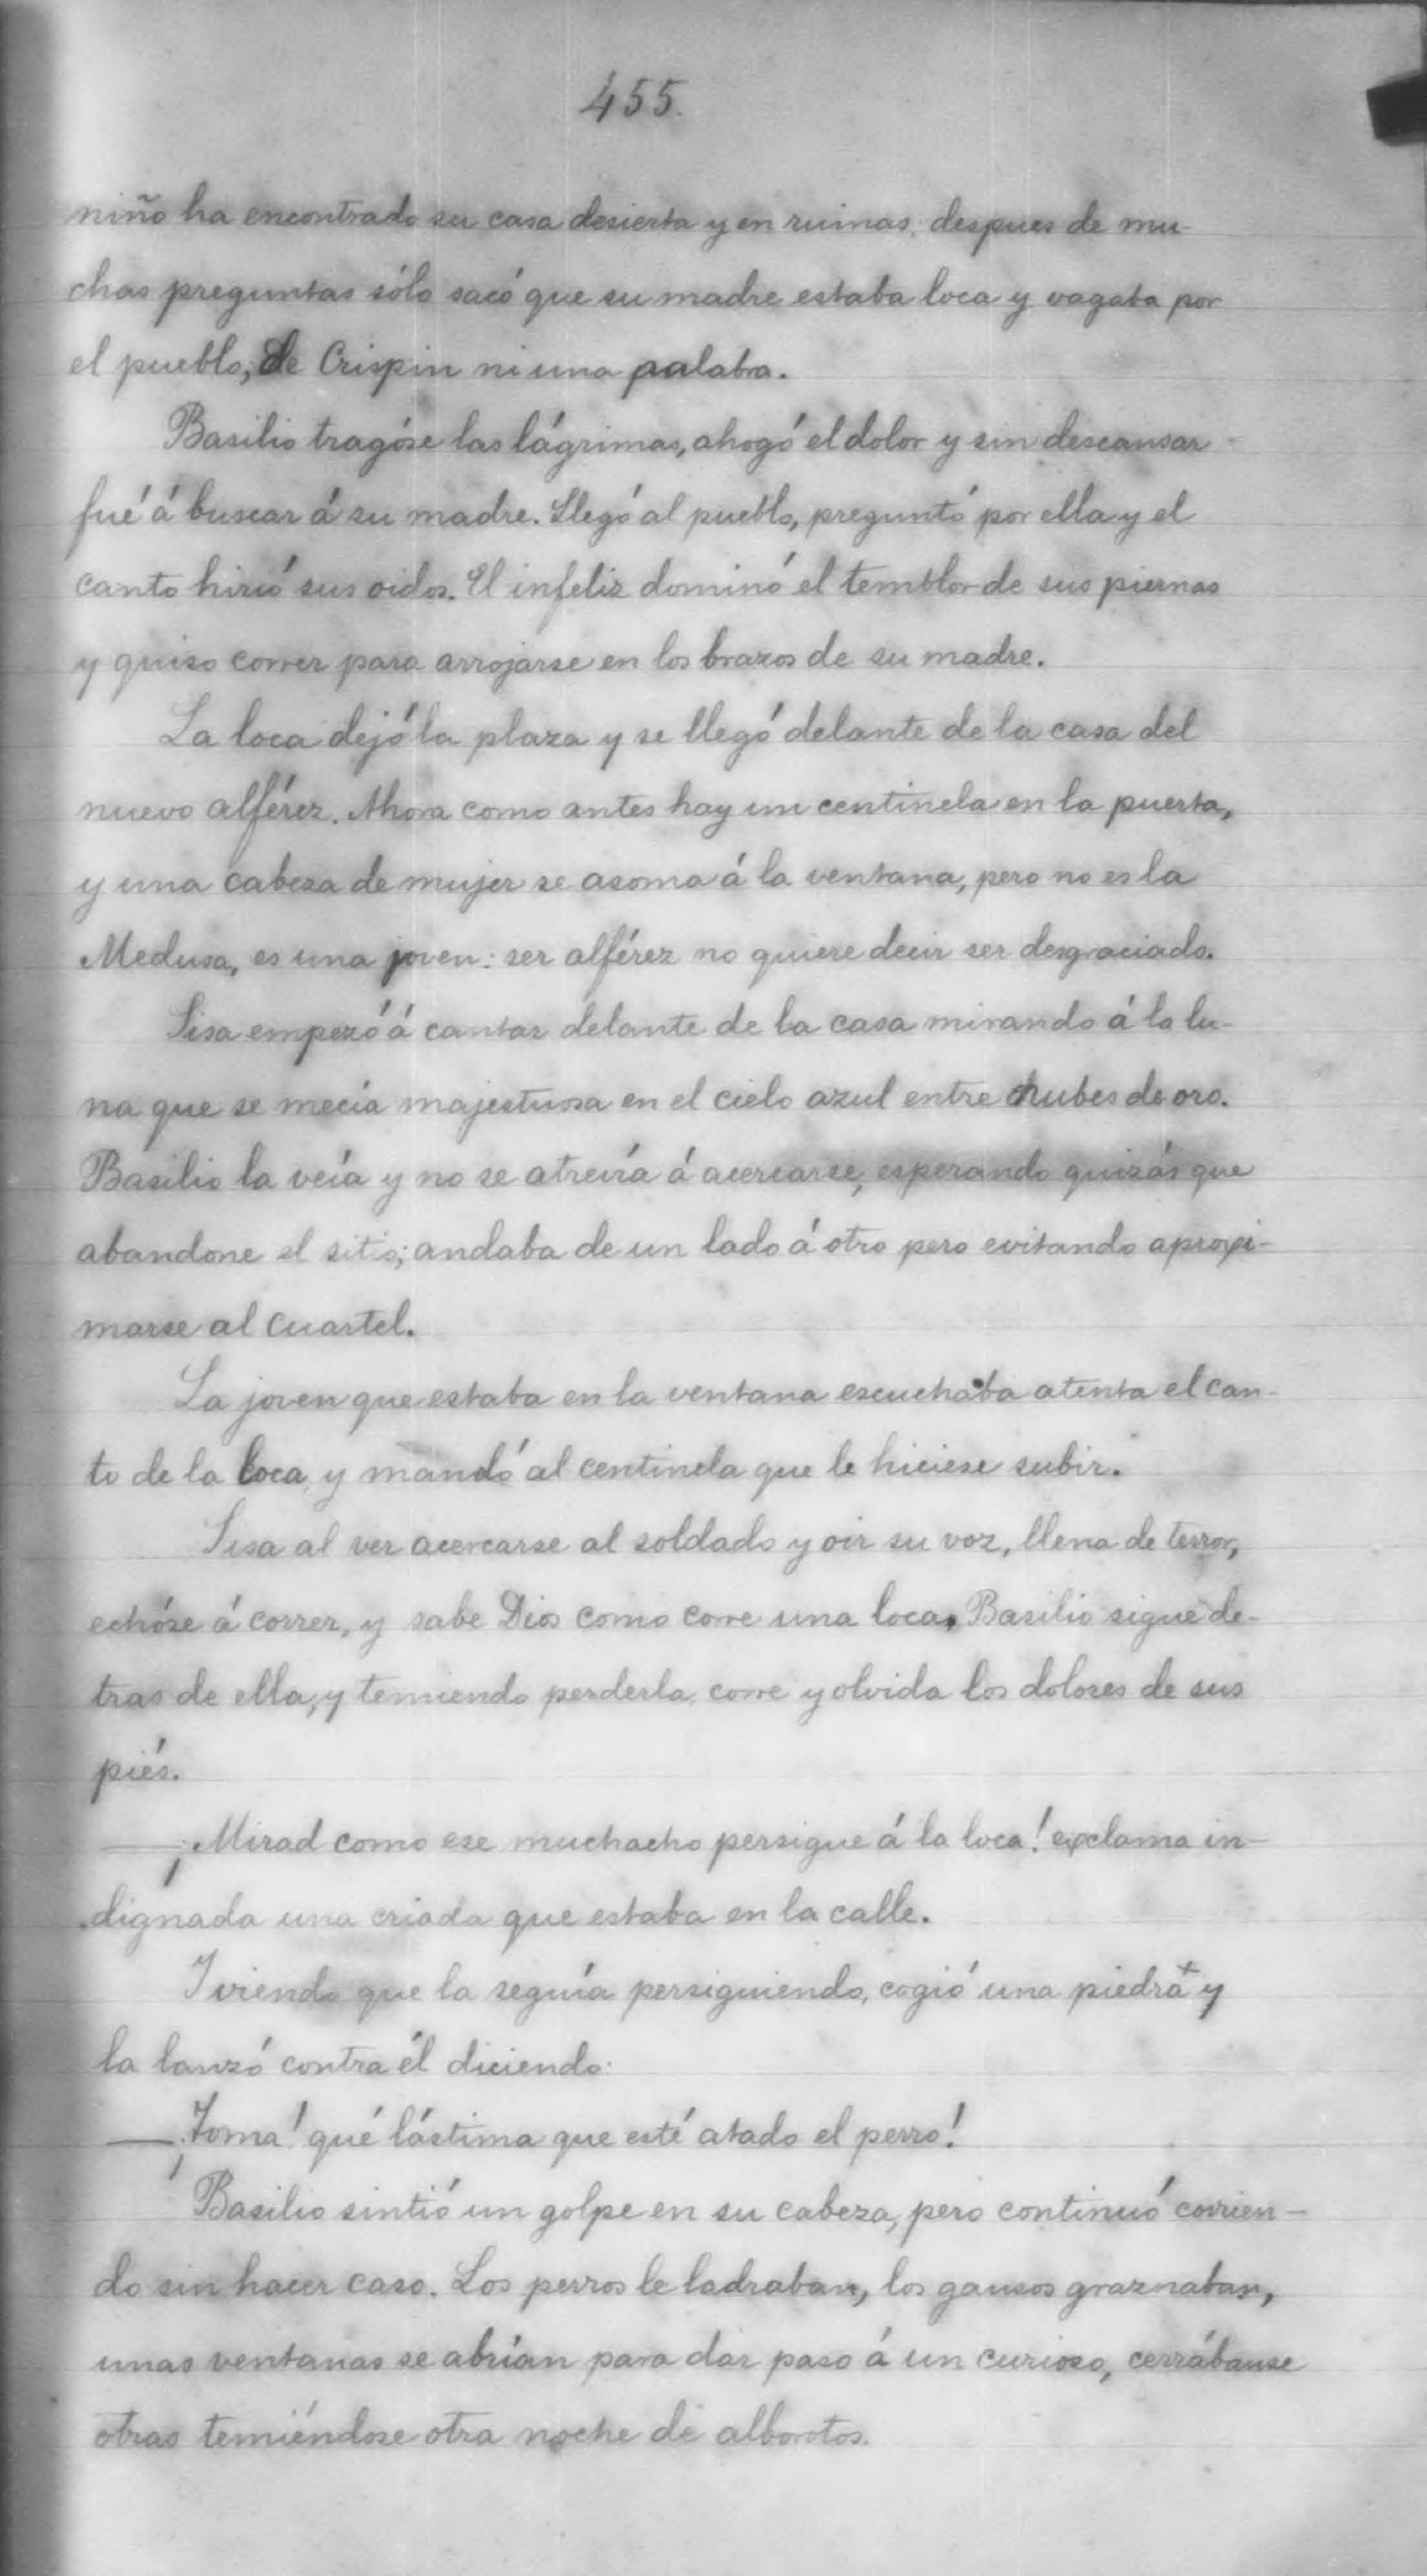 455.
niño ha encontrado su casa desierta y en ruinas, despues de mu-
chas preguntas sólo sacó que su madre estaba loca y vagaba por
el pueblo; de Crispin ni una palabra.
Basilio tragóse las lágrimas, ahogó el dolor y sin descansar
fué á buscar á su madre. Llegó al pueblo, preguntó por ella y el
canto hirió sus oidos. El infeliz dominó el temblor de sus piernas
y quiso correr para arrojarse en los brazos de su madre.
La loca dejó la plaza y se llegó delante de la casa del
nuevo alférez. Ahora como antes hay un centinela en la puerta,
y una cabeza de mujer se asoma á la ventana, pero no es la
Medusa, es una joven: ser alférez no quiere decir ser desgraciado.
Sisa empezó á cantar delante de la casa mirando á la lu-
na que se mecía majestuosa en el cielo azul entre nubes de oro.
Basilio la veía y no se atrevía á acercarse, esperando quizás que
abandone el sitio; andaba de un lado á otro pero evitando aproxi-
marse al cuartel.
La joven que estaba en la ventana escuchaba atenta el can-
to de la loca, y mandó al centinela que le hiciese subir.
Sisa al ver acercarse al soldado y oir su voz, llena de terror,
echóse á correr, y sabe Dios como corre una loca. Basilio sigue de-
tras de ella, y temiendo perderla, corre y olvida los dolores de sus
piés.
—¡Mirad como ese muchacho persigue á la loca! exclama in-
dignada una criada que estaba en la calle.
Y viendo que la seguía persiguiendo, cogió una piedra y
la lanzó contra él diciendo:
—¡Toma! qué lástima que esté atado el perro!
Basilio sintió un golpe en su cabeza, pero continuó corrien-
do sin hacer caso. Los perros le ladraban, los gansos graznaban,
unas ventanas se abrían para dar paso á un curioso, cerrábanse
otras temiéndose otra noche de alborotos.